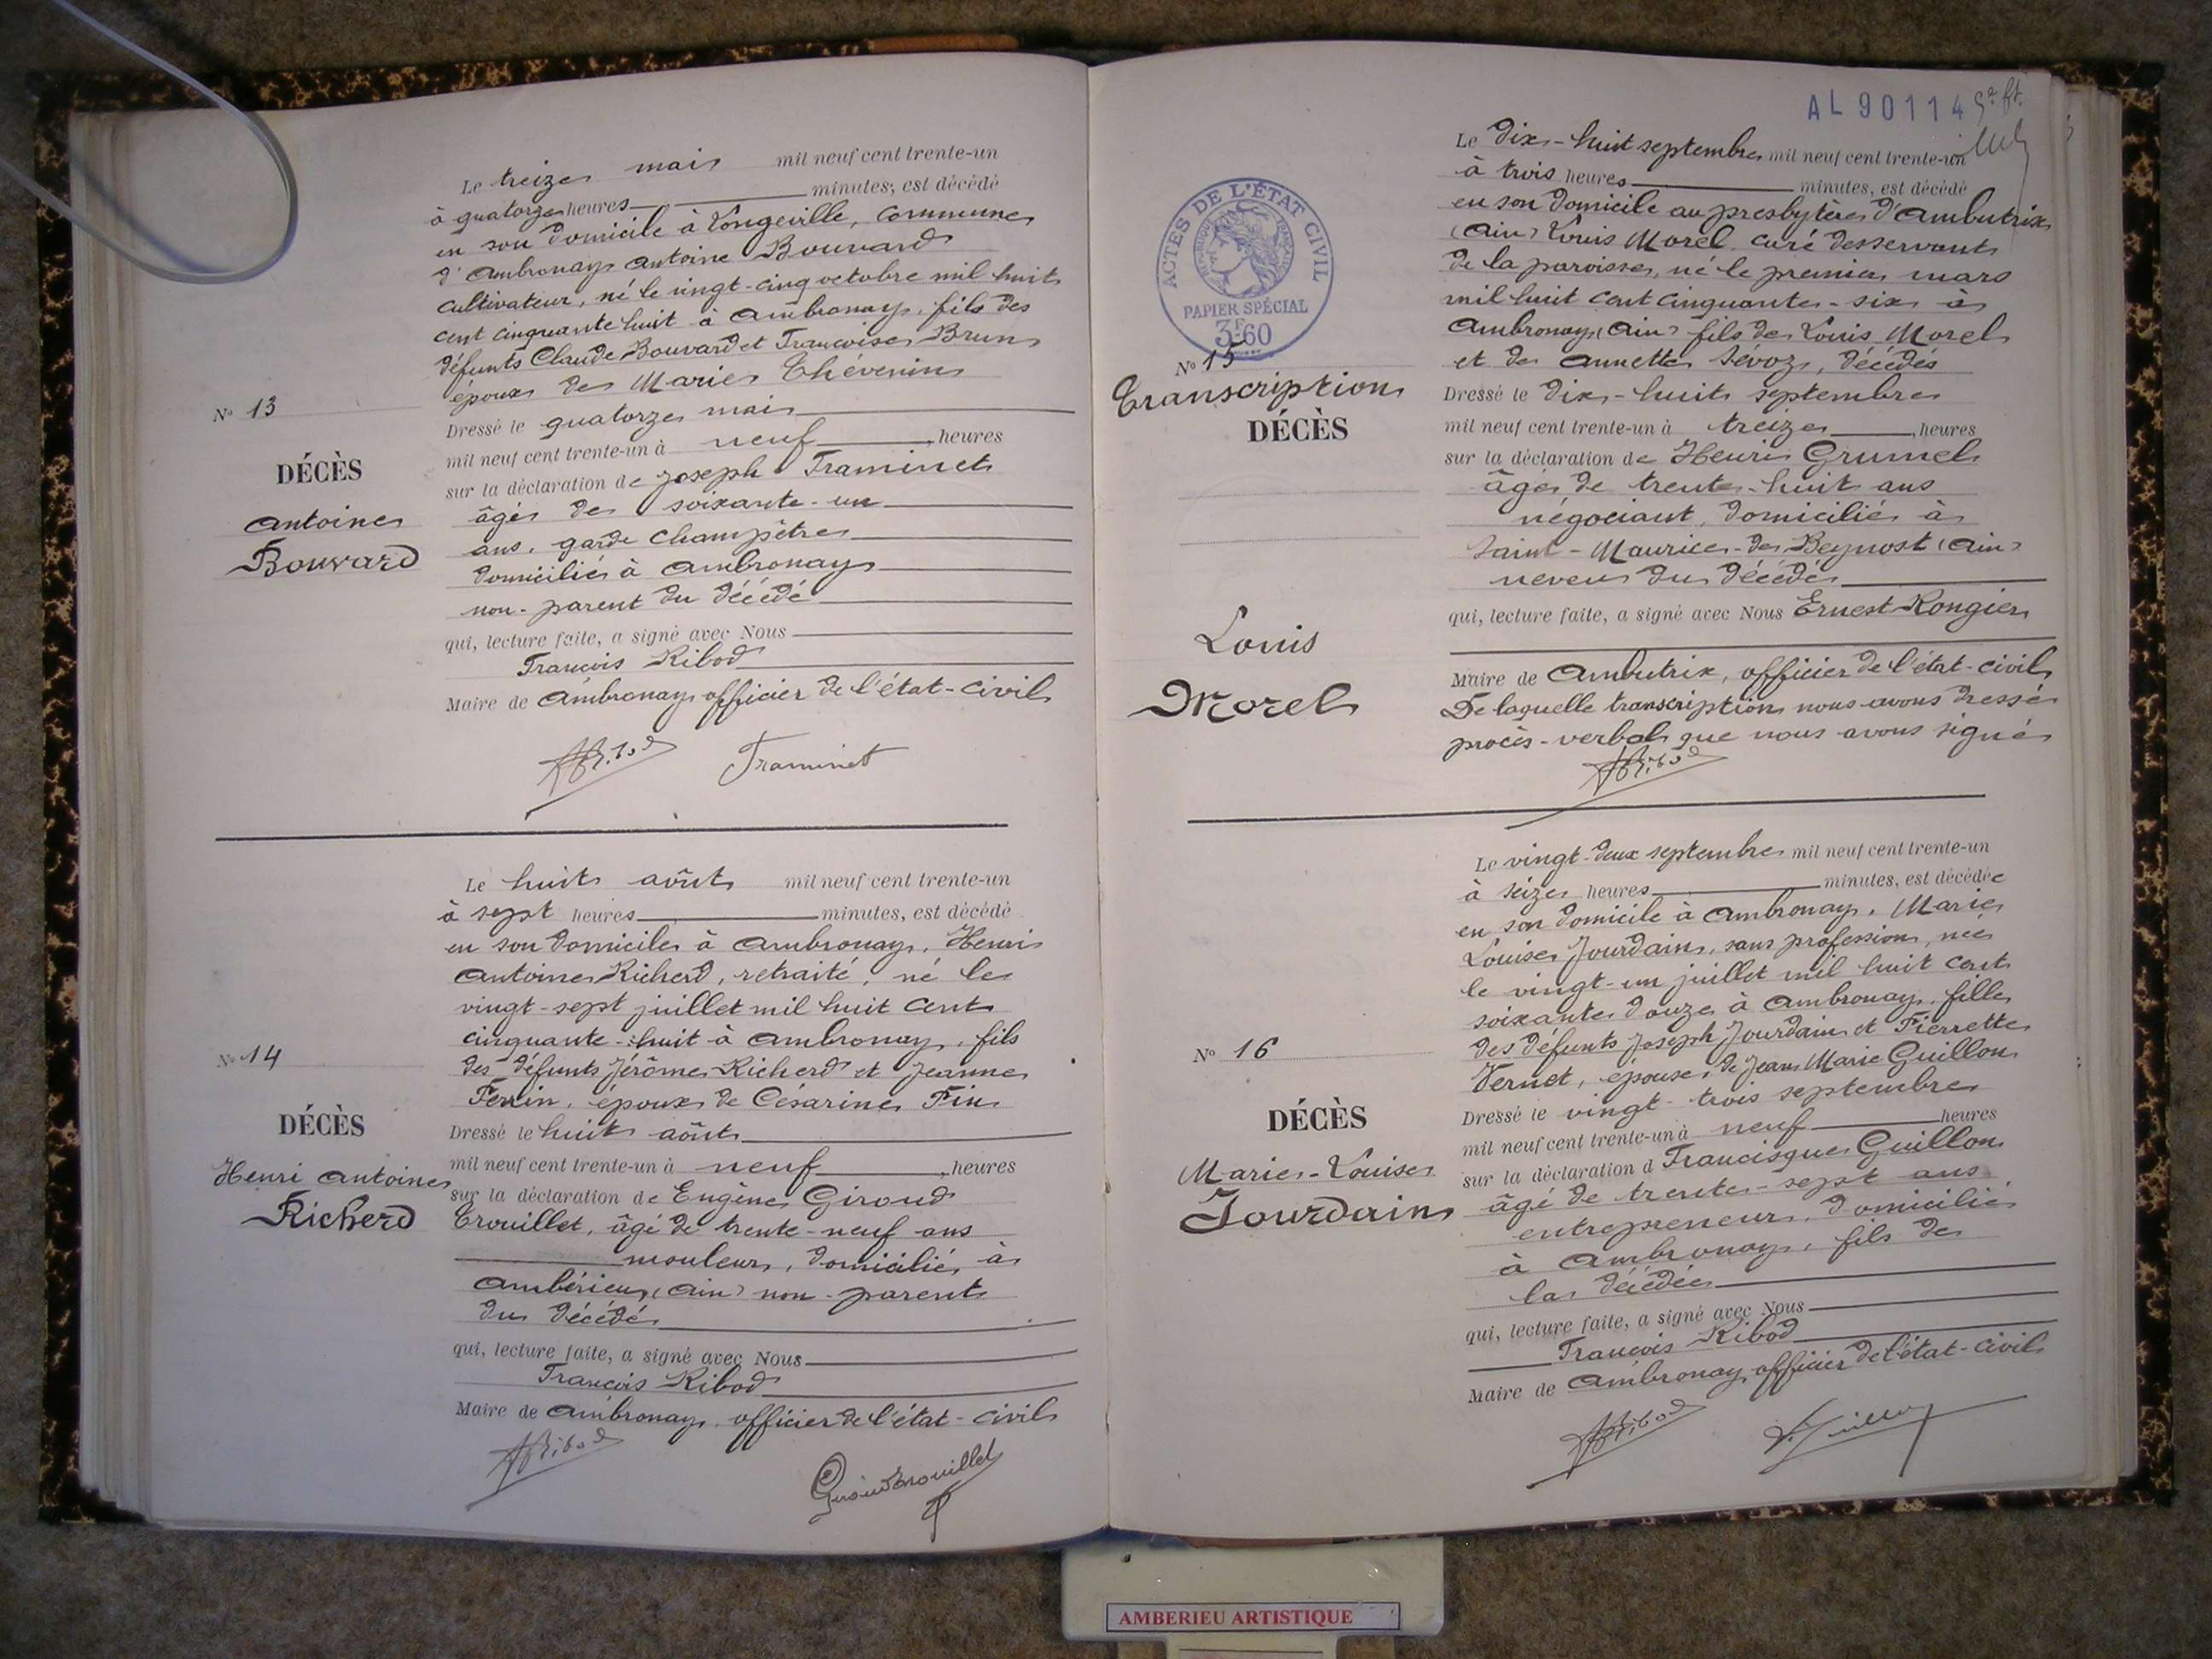 Le treize mai mil neuf cent trente-un
à quatorze heures minutes, est décédé
en son domicile à Longeville, commune
d'Ambronay Antoine Bouvard
cultivateur, né le vingt-cinq octobre mil huit
cent cinquante huit à Ambronay, fils des
défunts Claude Bouvard et Françoise Brun
époux de Marie Thévenin
N° 13
DÉCÈS
Antoine
Bouvard
Dressé le quatorze mai
mil neuf cent trente-un à neuf heures
sur la déclaration de Joseph Traminet
âgé de soixante-un
ans, garde champêtre
domicilié à Ambronay
non-parent du décédé
qui, lecture faite, a signé avec Nous
François Ribod
Maire de Ambronay officier de l'état-civil
Ribod Traminet
Le huit août mil neuf cent trente-un
à sept heures minutes, est décédé
en son domicile à Ambronay, Henri
Antoine Richerd, retraité, né le
vingt-sept juillet mil huit cent
cinquante-huit à Ambronay, fils
des défunts Jérôme Richerd et Jeanne
Ferrin, époux de Césarine Fin
N° 14
DÉCÈS
Henri Antoine
Richerd
Dressé le huit août
mil neuf cent trente-un à neuf heures
sur la déclaration de Eugène Giroud
Trouillet, âgé de trente-neuf ans
mouleur, domicilié à
Ambérieu (Ain) non-parent
du décédé
qui, lecture faite, a signé avec Nous
François Ribod
Maire de Ambronay, officier de l'état-civil
Ribod Giroud Trouillet
AL 90114
ACTES DE L'ÉTAT CIVIL
PAPIER SPÉCIAL
3F60
Le dix-huit septembre mil neuf cent trente-un
à trois heures minutes, est décédé
en son domicile au presbytère d'Ambutrix
(Ain) Louis Morel curé desservant
de la paroisse, né le premier mars
mil huit cent cinquante-six à
Ambronay (Ain) fils de Louis Morel
et de Annette Sévoz, décédés
N° 15
Transcription
DÉCÈS
Louis
Morel
Dressé le dix-huit septembre
mil neuf cent trente-un à treize heures
sur la déclaration de Henri Grumel
âgé de trente-huit ans
négociant, domicilié à
Saint-Maurice-de-Beynost (Ain)
neveu du décédé
qui, lecture faite, a signé avec Nous Ernest Rongier
Maire de Ambutrix, officier de l'état-civil
De laquelle transcription nous avons dressé
procès-verbal que nous avons signé
Ribod
Le vingt-deux septembre mil neuf cent trente-un
à seize heures minutes, est décédée
en son domicile à Ambronay, Marie
Louise Jourdain, sans profession, née
le vingt-un juillet mil huit cent
soixante douze à Ambronay, fille
des défunts Joseph Jourdain et Pierrette
Vernet, épouse de Jean Marie Guillon
N° 16
DÉCÈS
Marie-Louise
Jourdain
Dressé le vingt-trois septembre
mil neuf cent trente-un à neuf heures
sur la déclaration d Francisque Guillon
âgé de trente-sept ans
entrepreneur, domicilié
à Ambronay, fils de
la décédée
qui, lecture faite, a signé avec Nous
François Ribod
Maire de Ambronay officier de l'état-civil
Ribod F. Guillon
AMBERIEU ARTISTIQUE